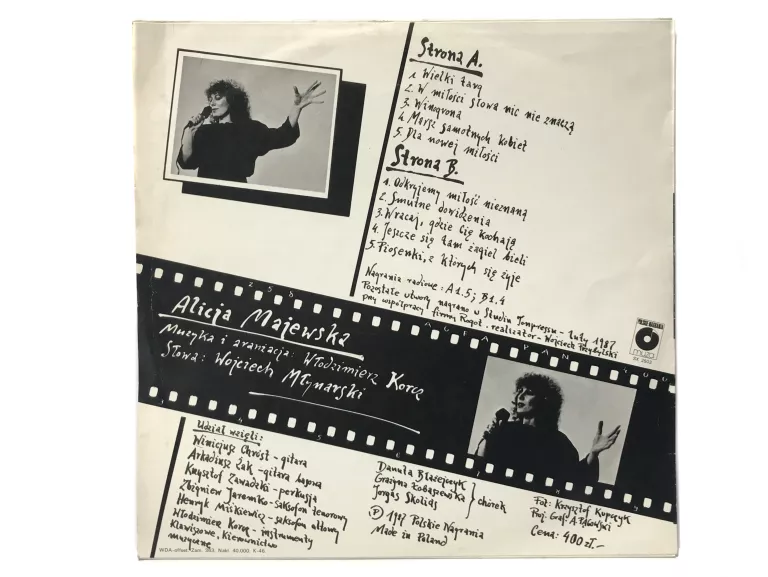 Strona A.
1. Wielki targ
2. W miłości słowa nic nie znaczą
3. Winogrona
4. Marsz samotnych kobiet
5. Dla nowej miłości
Strona B.
1. Odkryjemy miłość nieznaną
2. Smutne dowidzenia
3. Wracaj, gdzie Cię kochają
4. Jeszcze się tam żagiel bieli
5. Piosenki, z których się żyje
Nagrania radiowe: A 1.5; B 1.4
Pozostałe utwory nagrano w Studiu Tonpressu - luty 1987
przy współpracy firmy Rogot. realizator - Wojciech Przybylski
POLSKIE NAGRANIA
muza
SX 2503
AGFA PAN 400
Alicja Majewska
Muzyka i aranżacja: Włodzimierz Korcz
Słowa: Wojciech Młynarski
Udział wzięli:
Winicjusz Chróst - gitara
Arkadiusz Żak - gitara basowa
Krzysztof Zawadzki - perkusja
Zbigniew Jaremko - saksofon tenorowy
Henryk Miśkiewicz - saksofon altowy
Włodzimierz Korcz - instrumenty
klawiszowe, kierownictwo
muzyczne
Danuta Błażejczyk
Grażyna Łobaszewska
Jorgos Skolias
chórek
Ⓟ 1987 Polskie Nagrania
Made in Poland
Fot: Krzysztof Kopczyk
Proj. Graf: A. Pągowski
Cena: 400 zł.-
WDA-offset. Zam. 943. Nakł. 40.000. K-46